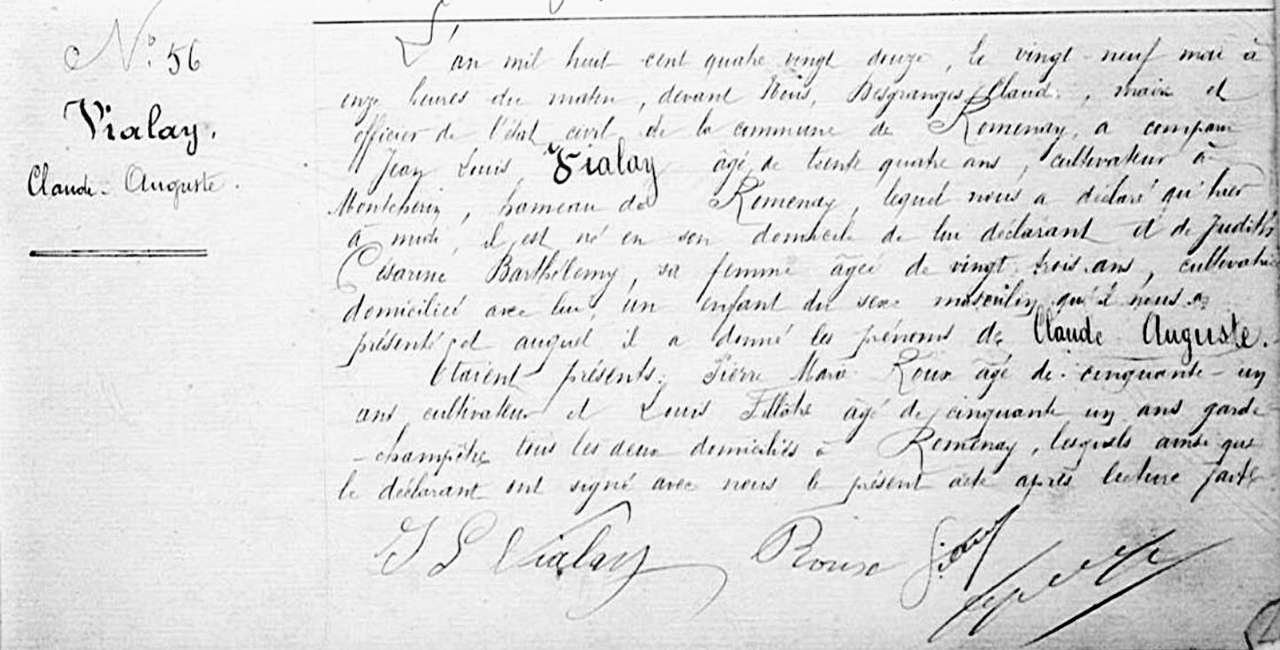 N° 56
Vialay.
Claude-Auguste.
L'an mil huit cent quatre vingt douze, le vingt-neuf mai à
onze heures du matin, devant Nous, Desgranges Claude, maire et
officier de l'état civil de la commune de Romenay, a comparu
Jean Louis Vialay âgé de trente quatre ans, cultivateur à
hameau de Romenay, lequel nous a déclaré qu'hier
à midi, il est né en son domicile de lui déclarant et de Judith
Césarine Barthélemy, sa femme âgée de vingt trois ans, cultivatrice
domiciliée avec lui, un enfant du sexe masculin qu'il nous a
présenté et auquel il a donné les prénoms de Claude Auguste.
Etaient présents: Pierre Marie Roux âgé de cinquante-un
ans cultivateur et Louis âgé de cinquante un ans garde
-champêtre tous les deux domiciliés à Romenay, lesquels ainsi que
le déclarant ont signé avec nous le présent acte après lecture faite
J L Vialay Roux